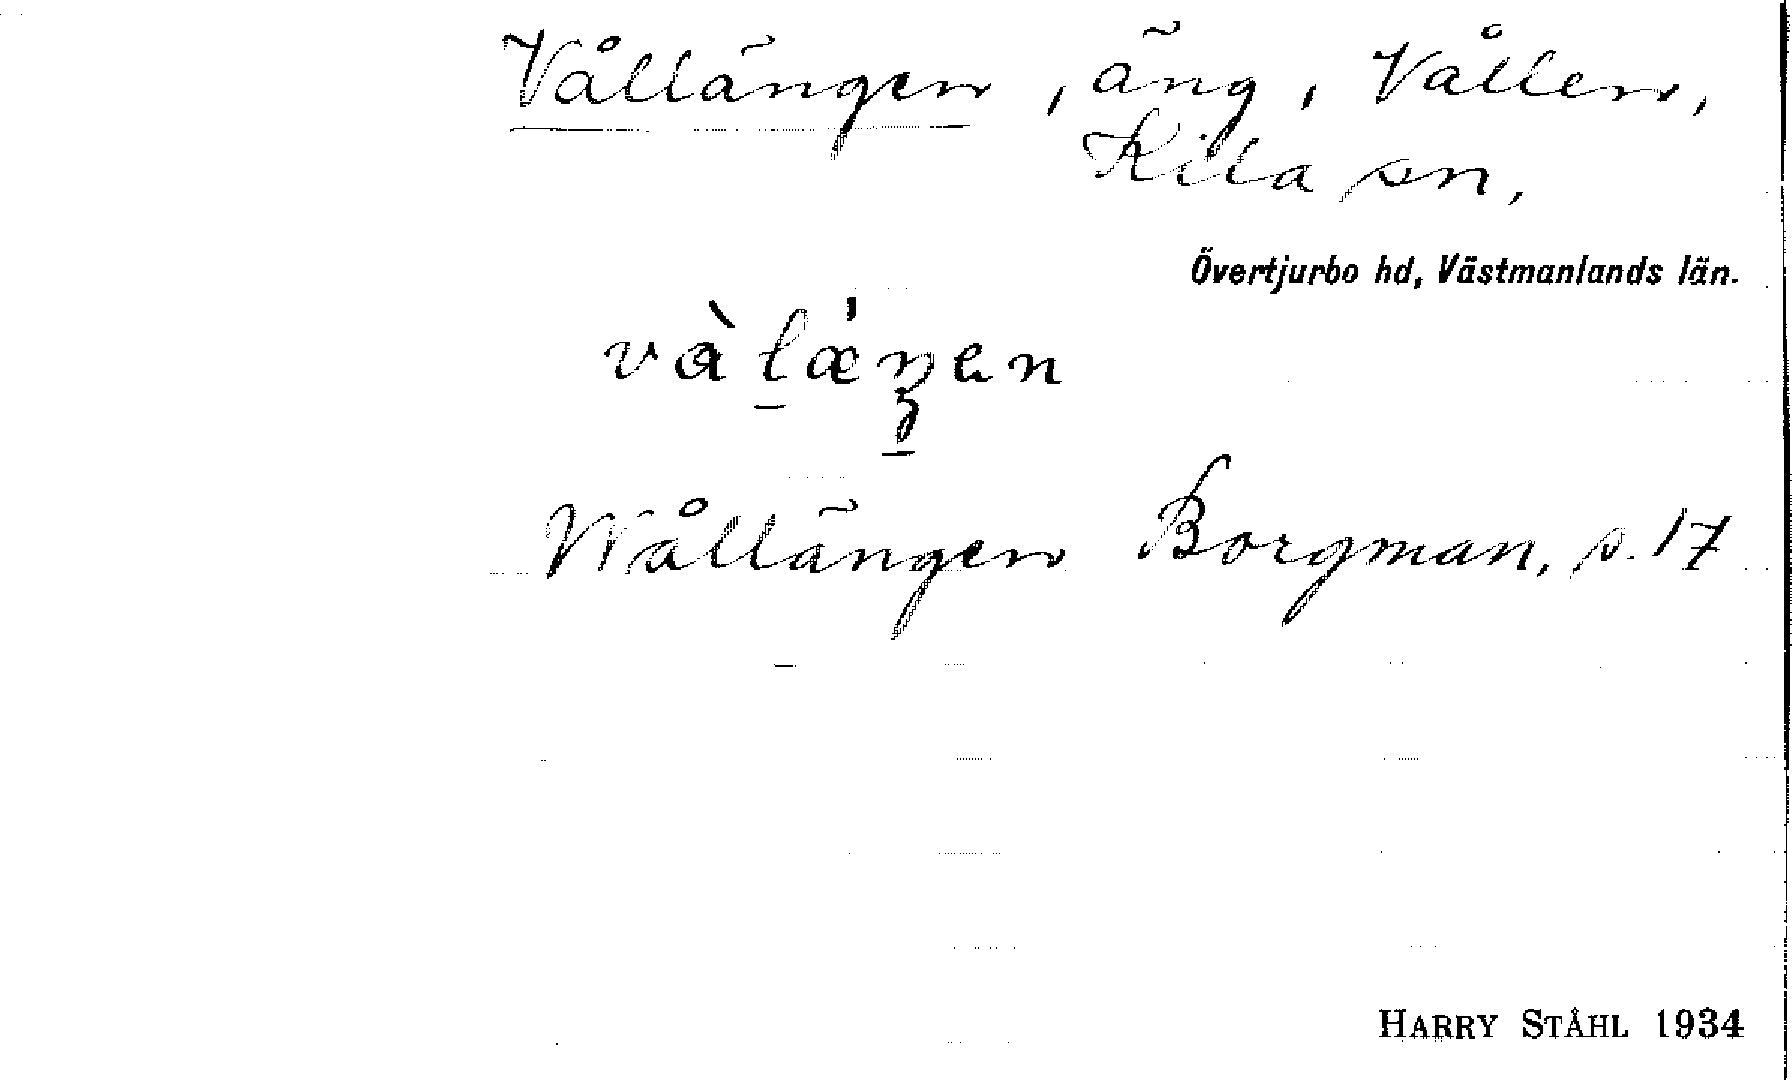 Vållängen, äng, Vållen,
Kila sn,
Övertjurbo hd, Västmanlands län.
Wållängen Borgman, s. 17
HARRY STÅHL 1934